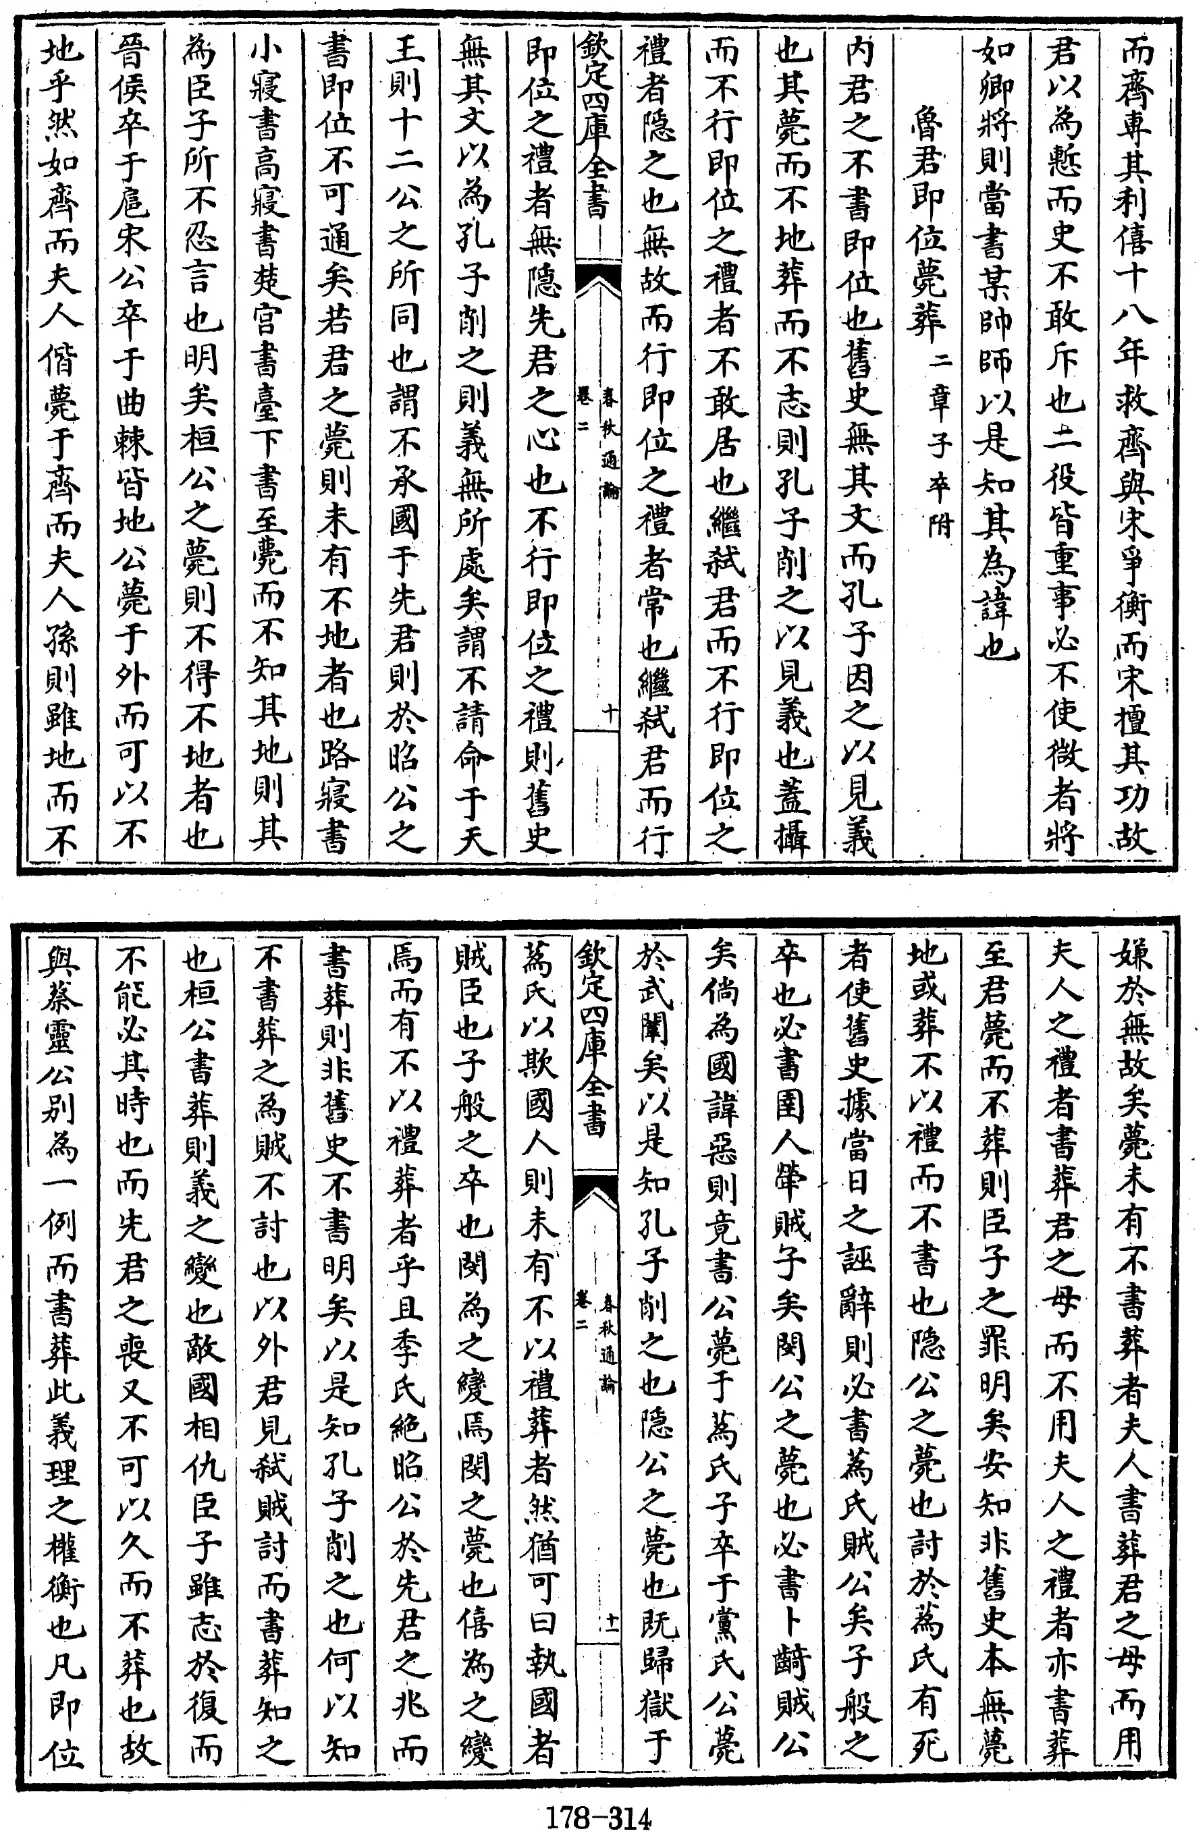 而齊專其利僖十八年救齊與宋爭衡而宋擅其功故
君以為慙而史不敢斥也二役皆重事必不使微者將
如卿將則當書某帥師以是知其為諱也
魯君即位薨葬二章子卒附
內君之不書即位也舊史無其文而孔子因之以見義
也其薨而不地葬而不志則孔子削之以見義也蓋攝
而不行即位之禮者不敢居也繼弒君而不行即位之
禮者隱之也無故而行即位之禮者常也繼弒君而行
欽定四庫全書
春秋通論
卷二
十
即位之禮者無隱先君之心也不行即位之禮則舊史
無其文以為孔子削之則義無所處矣謂不請命于天
王則十二公之所同也謂不承國于先君則於昭公之
書即位不可通矣若君之薨則未有不地者也路寢書
小寢書高寢書楚宮書臺下書至薨而不知其地則其
為臣子所不忍言也明矣桓公之薨則不得不地者也
晉侯卒于扈宋公卒于曲棘皆地公薨于外而可以不
地乎然如齊而夫人偕薨于齊而夫人孫則雖地而不
嫌於無故矣薨未有不書葬者夫人書葬君之母而用
夫人之禮者書葬君之母而不用夫人之禮者亦書葬
至君薨而不葬則臣子之罪明矣安知非舊史本無薨
地或葬不以禮而不書也隱公之薨也討於蒍氏有死
者使舊史據當日之誣辭則必書蒍氏賊公矣子般之
卒也必書圉人犖賊子矣閔公之薨也必書卜齮賊公
矣倘為國諱惡則竟書公薨于蒍氏子卒于黨氏公薨
於武闈矣以是知孔子削之也隱公之薨也既歸獄于
欽定四庫全書
春秋通論
卷二
十一
蒍氏以欺國人則未有不以禮葬者然猶可曰執國者
賊臣也子般之卒也閔為之變焉閔之薨也僖為之變
焉而有不以禮葬者乎且季氏絕昭公於先君之兆而
書葬則非舊史不書明矣以是知孔子削之也何以知
不書葬之為賊不討也以外君見弒賊討而書葬知之
也桓公書葬則義之變也敵國相仇臣子雖志於復而
不能必其時也而先君之喪又不可以久而不葬也故
與蔡靈公別為一例而書葬此義理之權衡也凡即位
178-314